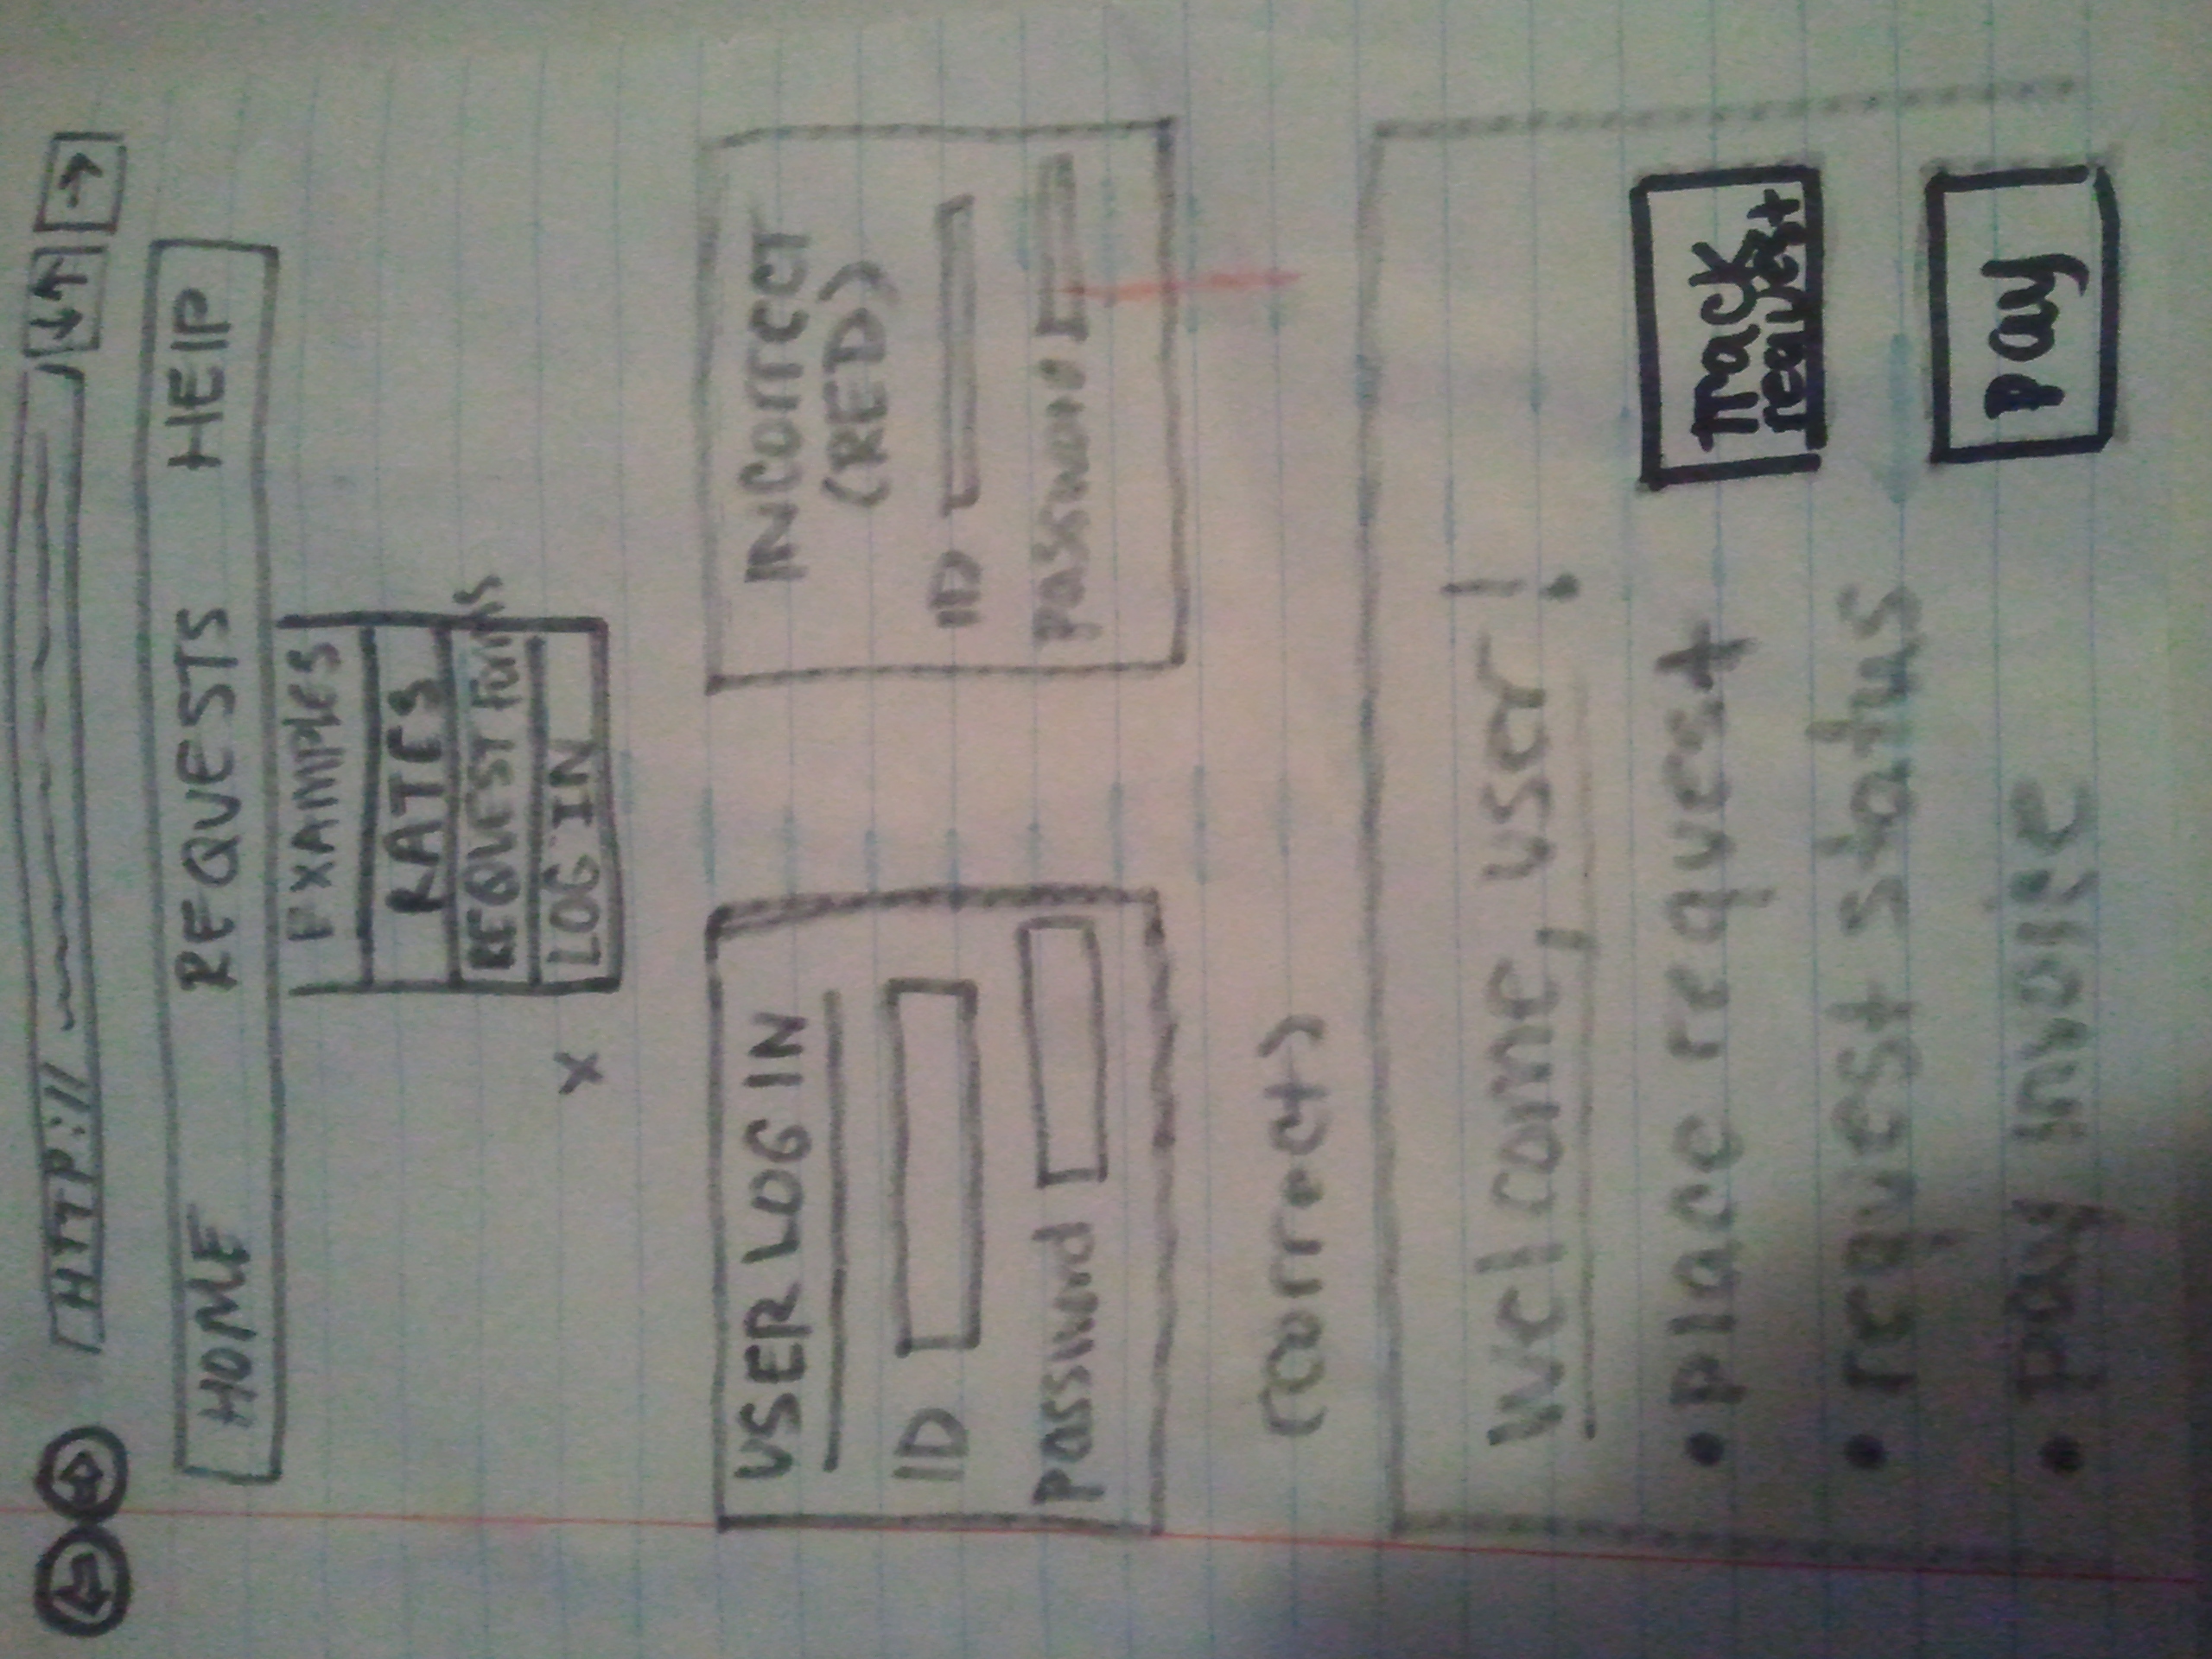 HTTP://
HOME REQUESTS HElP
EXAMPlES
RATES
REQUEST Forms
X LOG IN
USER LOG IN
ID
password
INCorrecT
(RED)
ID
password
(correct)
welcome, user!
• place request
Track
request
• request status
• pay invoice
pay